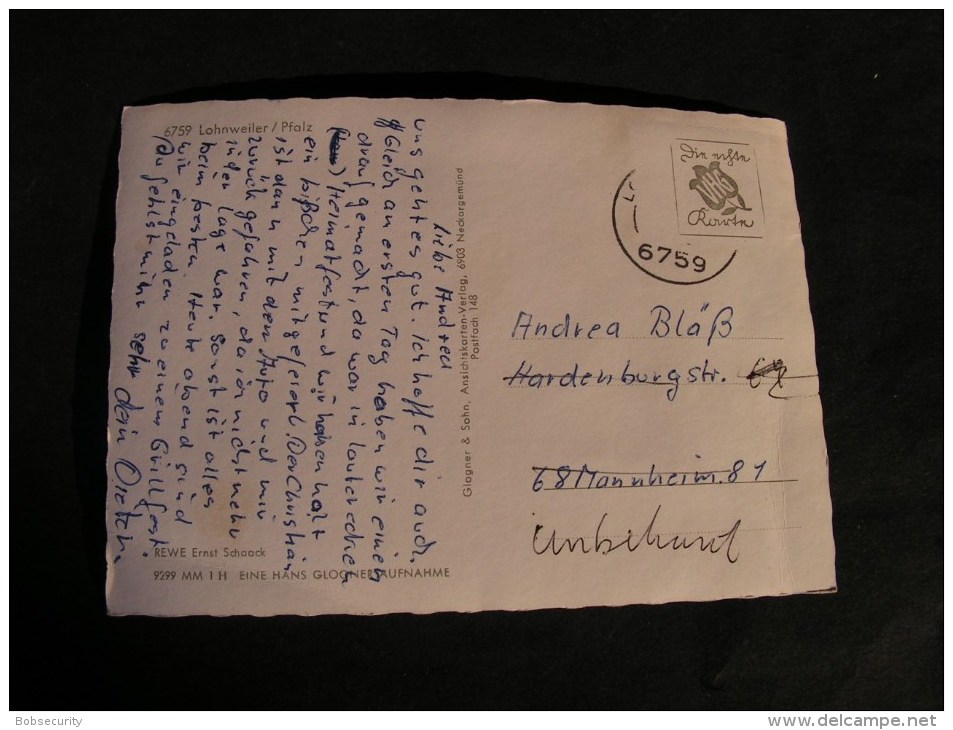 6759 Lohnweiler / Pfalz
Liebe Andrea
uns geht es gut. Ich hoffe dir auch.
Gleich am ersten Tag haben wir einen
drauf gemacht, da war in Lauterecken
Heimatfest und wir haben halt
ein bißchen mitgefeiert. Der Christian
ist dann mit dem Auto und mir
zurück gefahren, da ich nicht mehr
in der Lage war. Sonst ist alles
beim besten. Heute abend sind
wir eingeladen zu einem Grillfest.
Du fehlst mir sehr dein
REWE Ernst Schaack
9299 MM 1 H EINE HANS GLOGNER AUFNAHME
Glogner & Sohn, Ansichtskarten-Verlag, 6903 Neckargemünd
Postfach 148
Die echte
Karte
6759
Andrea Bläß
Hardenburgstr.
68 Mannheim. 81
Unbekannt
Bobsecurity
http://www.delcampe.net